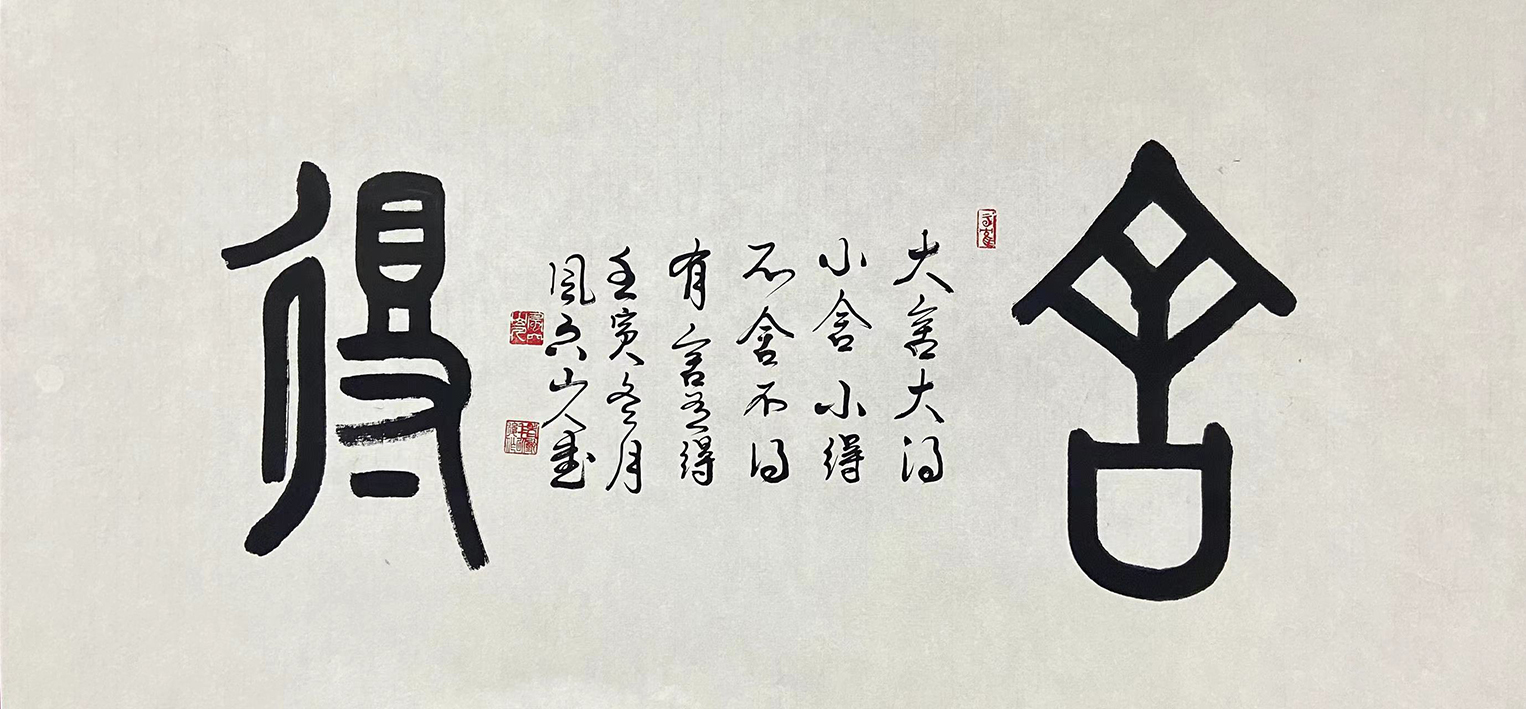 舍
大舍大得
小舍小得
不舍不得
有舍有得
壬寅冬月
風穴山人書
得